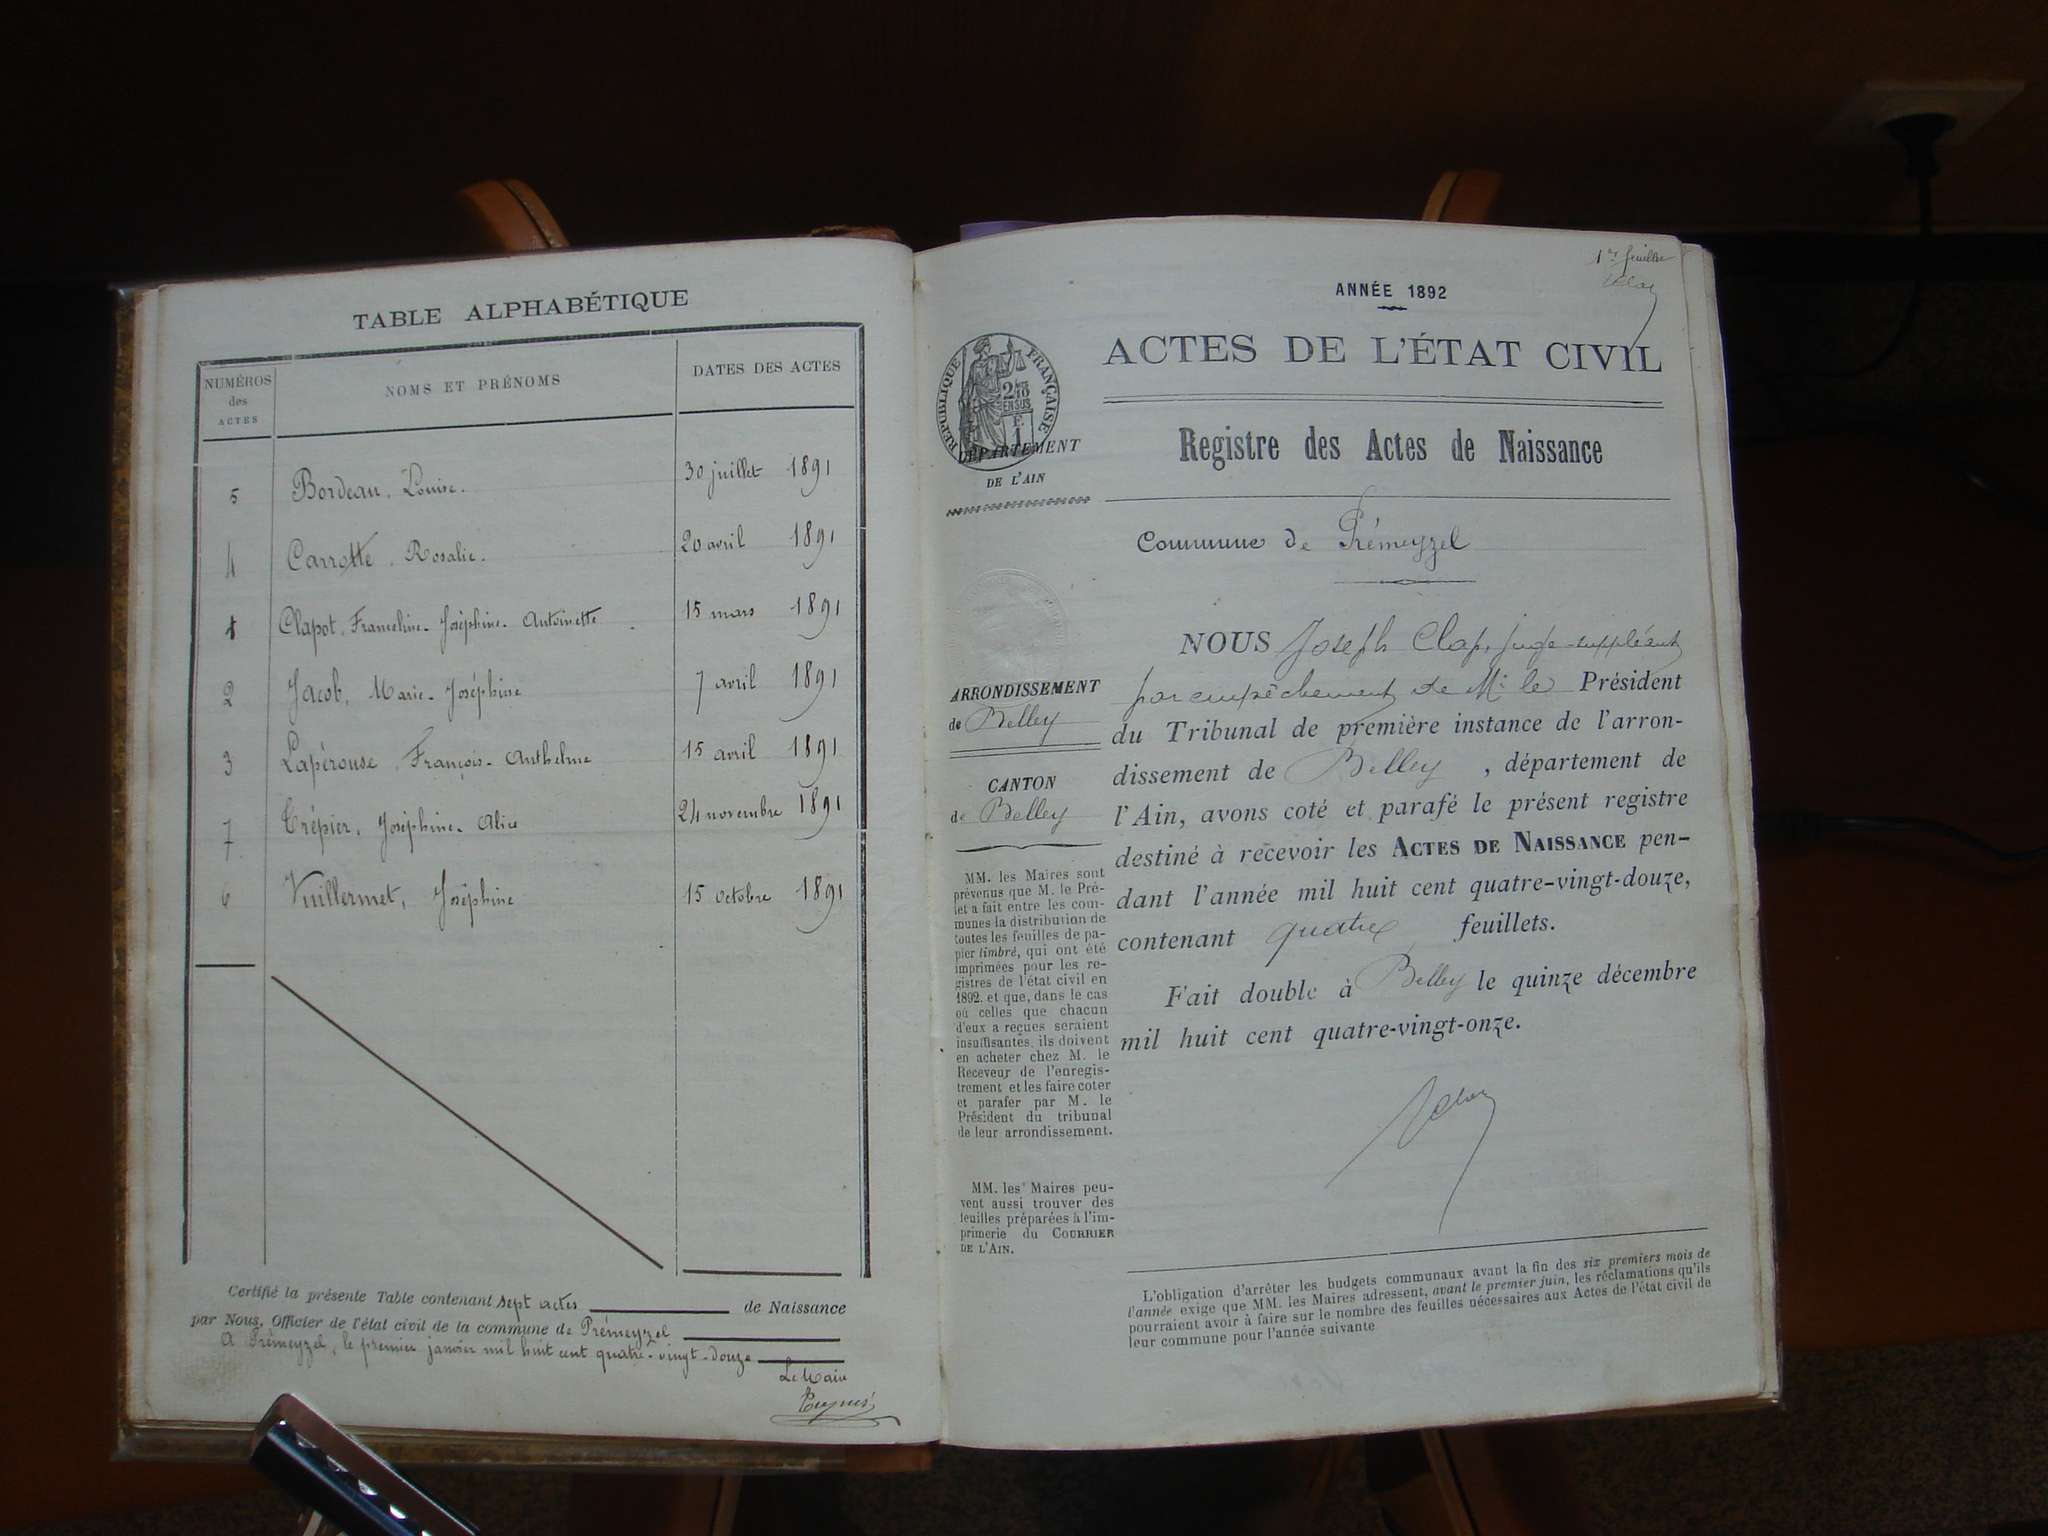 TABLE ALPHABÉTIQUE
NUMÉROS
des
ACTES
NOMS ET PRÉNOMS
DATES DES ACTES
5 Bordeau, Louise. 30 juillet 1891
4 Carrotte, Rosalie. 20 avril 1891
1 Clapot, Franceline-Joséphine-Antoinette 15 mars 1891
2 Jacob, Marie-Joséphine 7 avril 1891
3 Lapérouse, François-Anthelme 15 avril 1891
7 Trépier, Joséphine-Alice 24 novembre 1891
6 Vuillermet, Joséphine 15 octobre 1891
Certifié la présente Table contenant sept actes de Naissance
par Nous, Officier de l'état civil de la commune de Prémeyzel
A Prémeyzel, le premier janvier mil huit cent quatre-vingt-douze
Le Maire
1er feuillet
ANNÉE 1892
ACTES DE L'ÉTAT CIVIL
RÉPUBLIQUE FRANÇAISE
DÉPARTEMENT
DE L'AIN
Registre des Actes de Naissance
Commune de Prémeyzel
ARRONDISSEMENT
de Belley
CANTON
de Belley
MM. les Maires sont
prévenus que M. le Pré-
fet a fait entre les com-
munes la distribution de
toutes les feuilles de pa-
pier timbré, qui ont été
imprimées pour les re-
gistres de l'état civil en
1892. et que, dans le cas
où celles que chacun
d'eux a reçues seraient
insuffisantes, ils doivent
en acheter chez M. le
Receveur de l'enregis-
trement et les faire coter
et parafer par M. le
Président du tribunal
de leur arrondissement.
MM. les Maires peu-
vent aussi trouver des
feuilles préparées à l'im-
primerie du COURRIER
DE L'AIN.
NOUS Joseph Clap, juge-suppléant
par empêchement de Mr le Président
du Tribunal de première instance de l'arron-
dissement de Belley, département de
l'Ain, avons coté et parafé le présent registre
destiné à recevoir les ACTES DE NAISSANCE pen-
dant l'année mil huit cent quatre-vingt-douze,
contenant quatre feuillets.
Fait double à Belley le quinze décembre
mil huit cent quatre-vingt-onze.
L'obligation d'arrêter les budgets communaux avant la fin des six premiers mois de
l'année exige que MM. les Maires adressent, avant le premier juin, les réclamations qu'ils
pourraient avoir à faire sur le nombre des feuilles nécessaires aux Actes de l'état civil de
leur commune pour l'année suivante